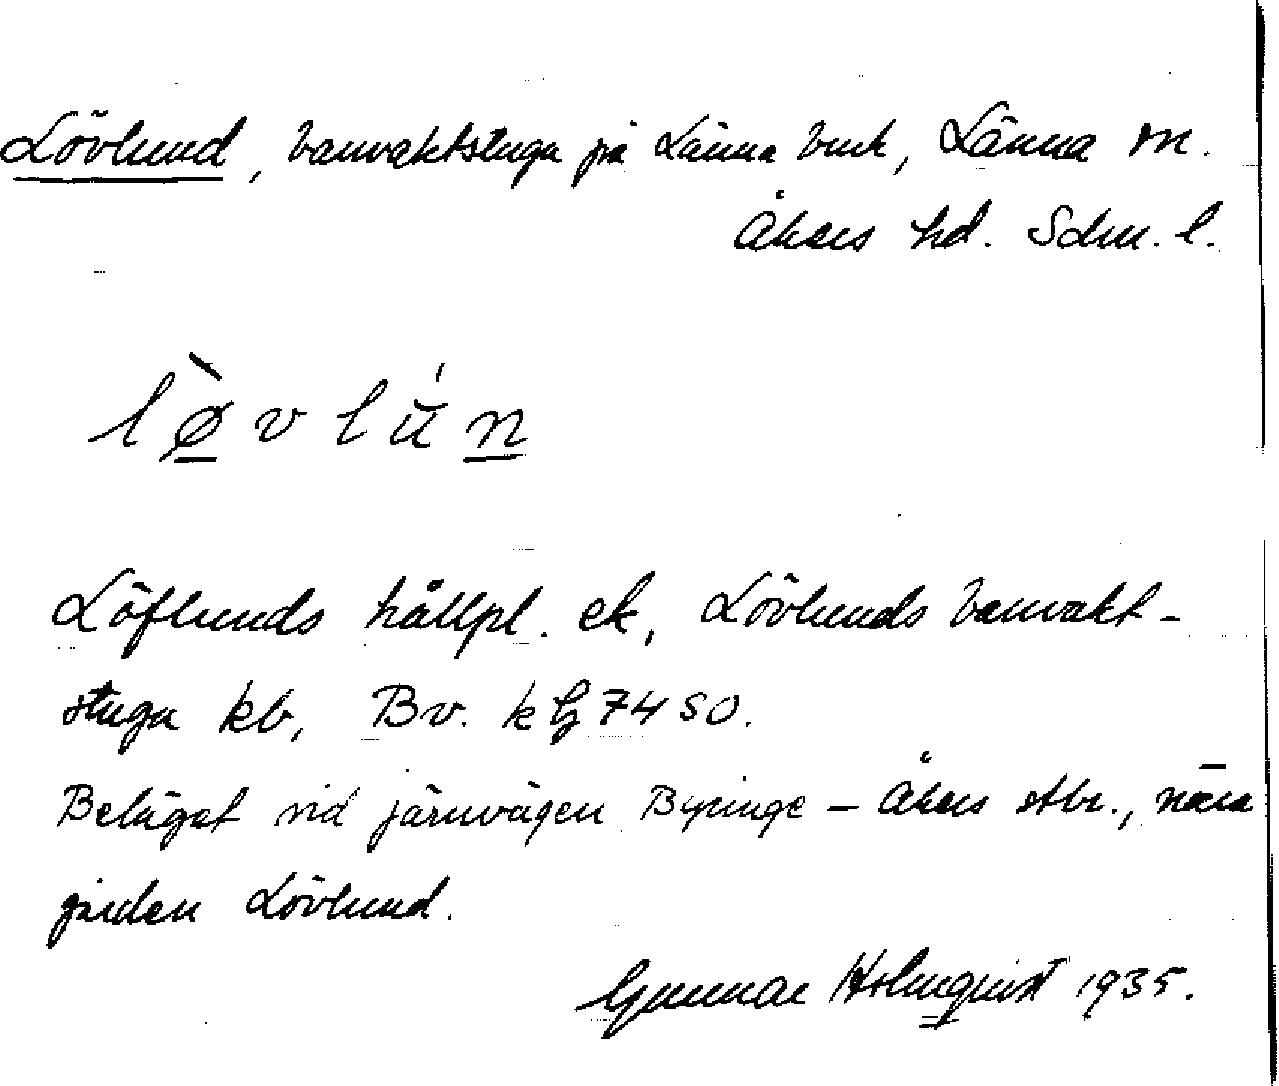 Lövlund, banvaktstuga på Länna bruk, Länna sn.
Åkers hd. Södm. l.
lø̀vlún
Löflunds hållpl. ek, Lövlunds banvakt-
stuga kb, Bv. k 7450.
Beläget vid järnvägen Byringe – Åkers stbr., nära
gården Lövlund.
Gunnar Holmqvist 1935.